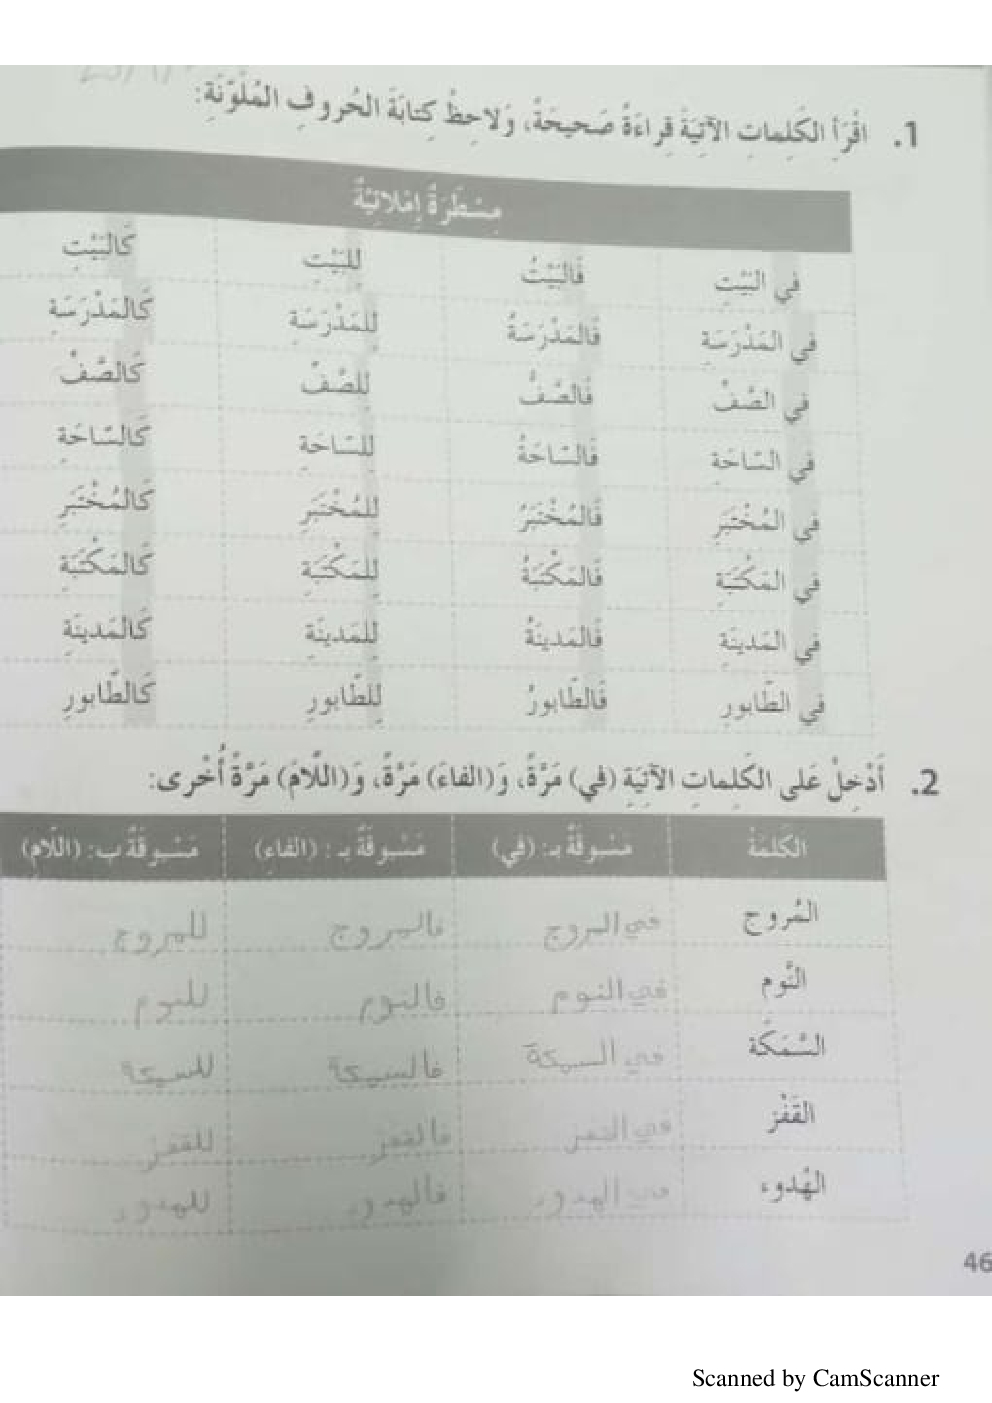 1. اقْرَأِ الكَلِماتِ الآتِيَةَ قِراءَةً صَحيحَةً، وَلاحِظْ كِتابَةَ الحُروفِ المُلَوَّنَةِ:
مِسْطَرَةٌ إِمْلائِيَّةٌ
في البَيْتِ فَالبَيْتُ لِلبَيْتِ كَالبَيْتِ
في المَدْرَسَةِ فَالمَدْرَسَةُ لِلمَدْرَسَةِ كَالمَدْرَسَةِ
في الصَّفِّ فَالصَّفُّ لِلصَّفِّ كَالصَّفِّ
في السّاحَةِ فَالسّاحَةُ لِلسّاحَةِ كَالسّاحَةِ
في المُخْتَبَرِ فَالمُخْتَبَرُ لِلمُخْتَبَرِ كَالمُخْتَبَرِ
في المَكْتَبَةِ فَالمَكْتَبَةُ لِلمَكْتَبَةِ كَالمَكْتَبَةِ
في المَدينَةِ فَالمَدينَةُ لِلمَدينَةِ كَالمَدينَةِ
في الطّابورِ فَالطّابورُ لِلطّابورِ كَالطّابورِ
2. أَدْخِلْ عَلى الكَلِماتِ الآتِيَةِ (في) مَرَّةً، وَ(الفاءَ) مَرَّةً، وَ(اللّامَ) مَرَّةً أُخْرى:
الكَلِمَةُ مَسْبوقَةٌ بـ: (في) مَسْبوقَةٌ بـ: (الفاءِ) مَسْبوقَةٌ ب: (اللّامِ)
المُروج في المروج فالمروج للمروج
النَّوم في النوم فالنوم للنوم
السَّمَكَة في السمكة فالسمكة للسمكة
القَفْز في القفز فالقفز للقفز
الهُدوء في الهدوء فالهدوء للهدوء
46
Scanned by CamScanner